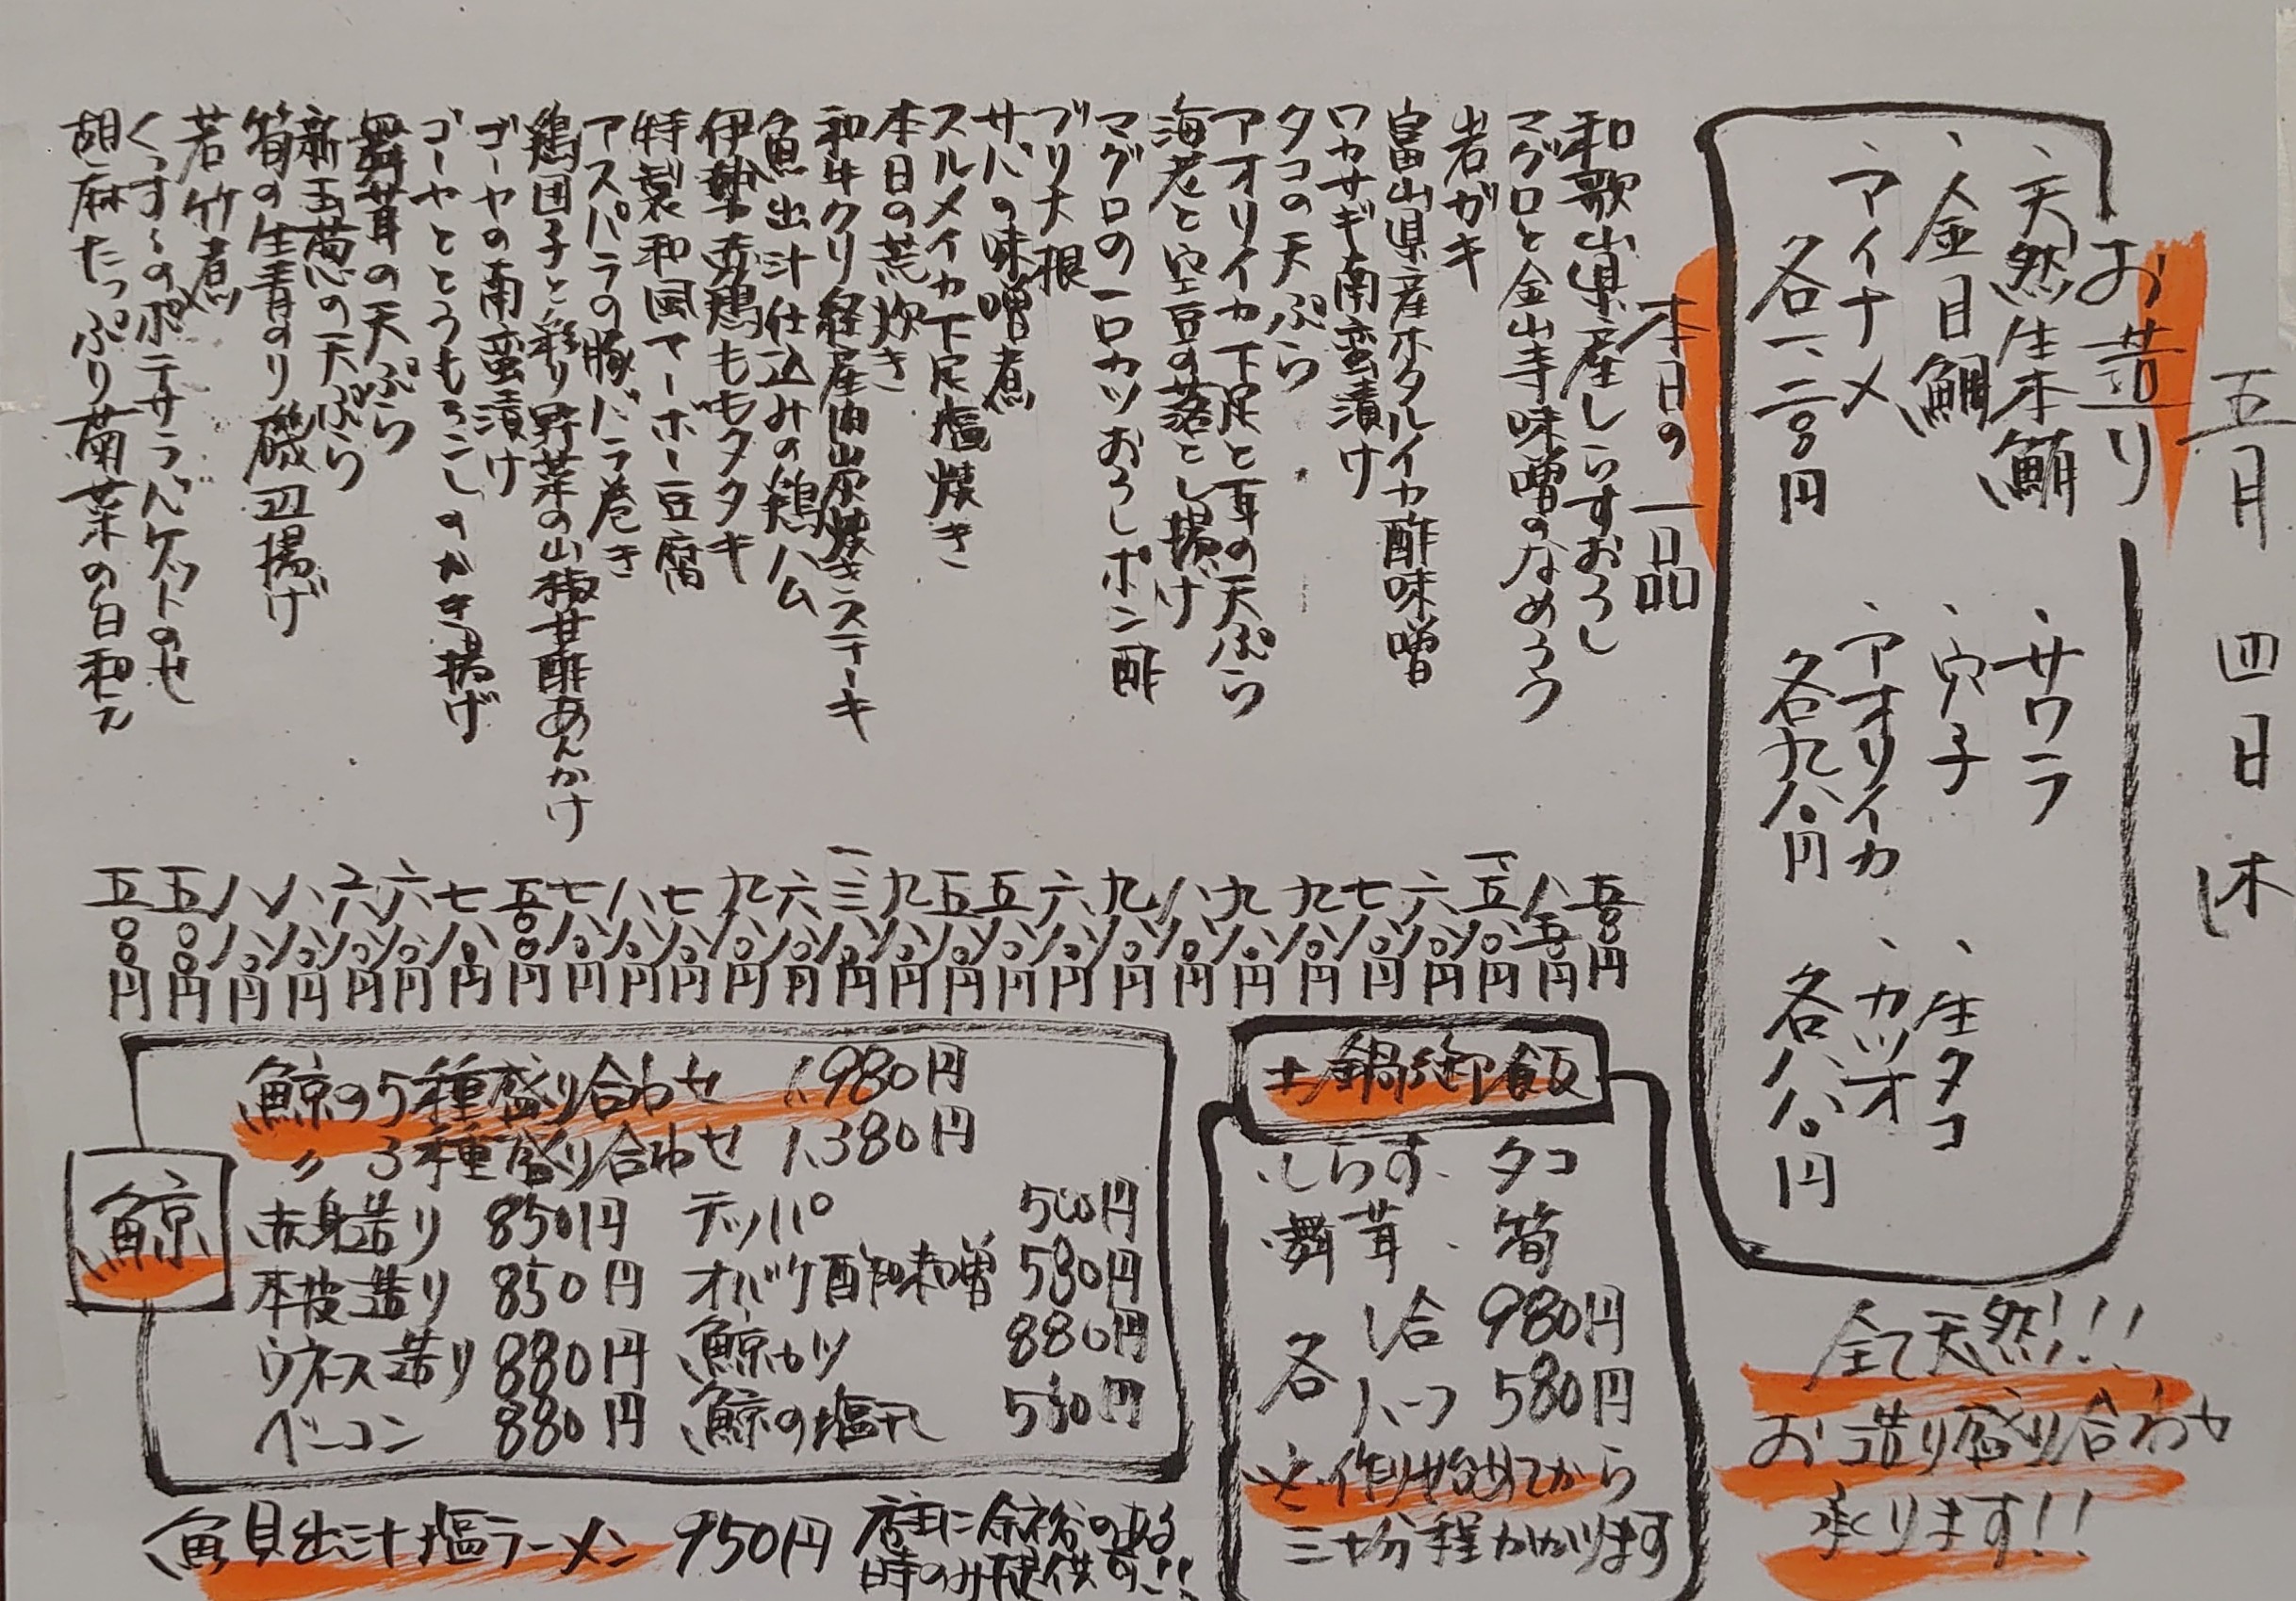 五月 四日(木)
お造り
、天然生本鮪
、金目鯛
、アイナメ
各一、二〇〇円
、サワラ
、穴子
、アオリイカ
各九八〇円
、生タコ
、カツオ
各八八〇円
全て天然!!!
お造り盛り合わせ
承ります!!
本日の一品
和歌山県産しらすおろし 五〇〇円
マグロと金山寺味噌のなめろう 八五〇円
岩ガキ
富山県産ホタルイカ酢味噌 六八〇円
ワカサギ南蛮漬け 七八〇円
タコの天ぷら 九八〇円
アオリイカ下足と耳の天ぷら 九八〇円
海老と空豆の落とし揚げ 八八〇円
マグロの一口カツおろしポン酢 九八〇円
ブリ大根 六八〇円
サバの味噌煮 五八〇円
スルメイカ下足塩焼き 五八〇円
本日の荒炊き 九八〇円
和牛クリ経産肉炭焼きステーキ 一、三八〇円
魚出汁仕込みの鶏ハム 六八〇円
伊勢赤鶏ももタタキ 九八〇円
特製和風マーボー豆腐 七八〇円
アスパラの豚バラ巻き 八八〇円
鶏団子と彩り野菜の山椒甘酢あんかけ 七八〇円
ゴーヤの南蛮漬け 五〇〇円
ゴーヤととうもろこしのかき揚げ 七八〇円
舞茸の天ぷら 六八〇円
新玉葱の天ぷら
筍の生青のり磯辺揚げ 八八〇円
若竹煮 八八〇円
くっすんのポテサラバゲットのせ 五〇〇円
胡麻たっぷり菊菜の白和え 五〇〇円
土鍋御飯
・しらす ・タコ
・舞茸 ・筍
各 1合 980円
ハーフ 580円
※作り始めてから
三十分程かかります
鯨
鯨の5種盛り合わせ 1,980円
〃 3種盛り合わせ 1,380円
赤身造り 850円 テッパ 500円
本皮造り 850円 オバケ酢味噌 580円
ウネス造り 880円 鯨カツ 880円
ベーコン 880円 鯨の塩タレ 580円
魚貝出汁塩ラーメン 950円 店主に余裕のある
時のみ提供可!!